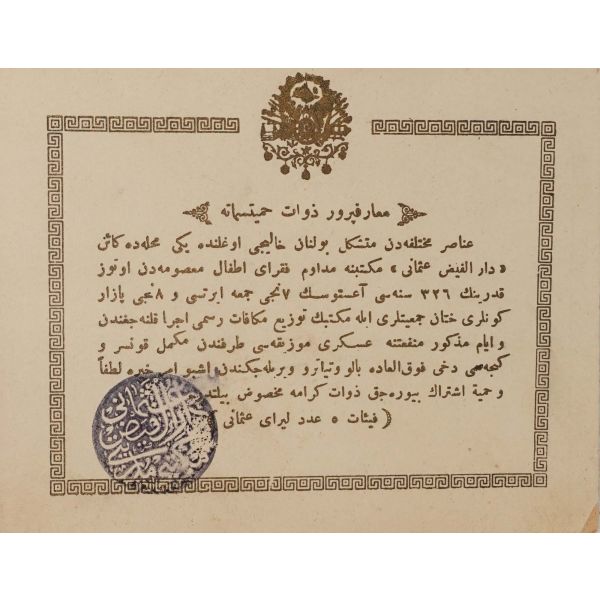 معارفپرور ذوات حمیتسماته
عناصر مختلفه‌دن متشكل بولنان خالیجی اوغلنده یكی محله‌ده كائن
«دار الفیض عثمانی» مكتبنه مداوم فقرای اطفال معصومه‌دن اوتوز
قدرینك ٣٢٦ سنه‌سی آغستوسك ٧نجی جمعه ایرتسی و ٨نجی پازار
كونلری ختان جمعیتلری ایله مكتبك توزیع مكافات رسمی اجرا قلنه‌جغندن
و ایام مذكور منفعتنه عسكری موزیقه‌سی طرفندن مكمل قونسر و
كیجه‌سی دخی فوق‌العاده بالو و تیاترو ویریله‌جكندن اشبو امر خیره لطفاً
و حمیة اشتراك بیوره‌جق ذوات كرامه مخصوص بیلتدر
( فیئات ٥ عدد لیرای عثمانی